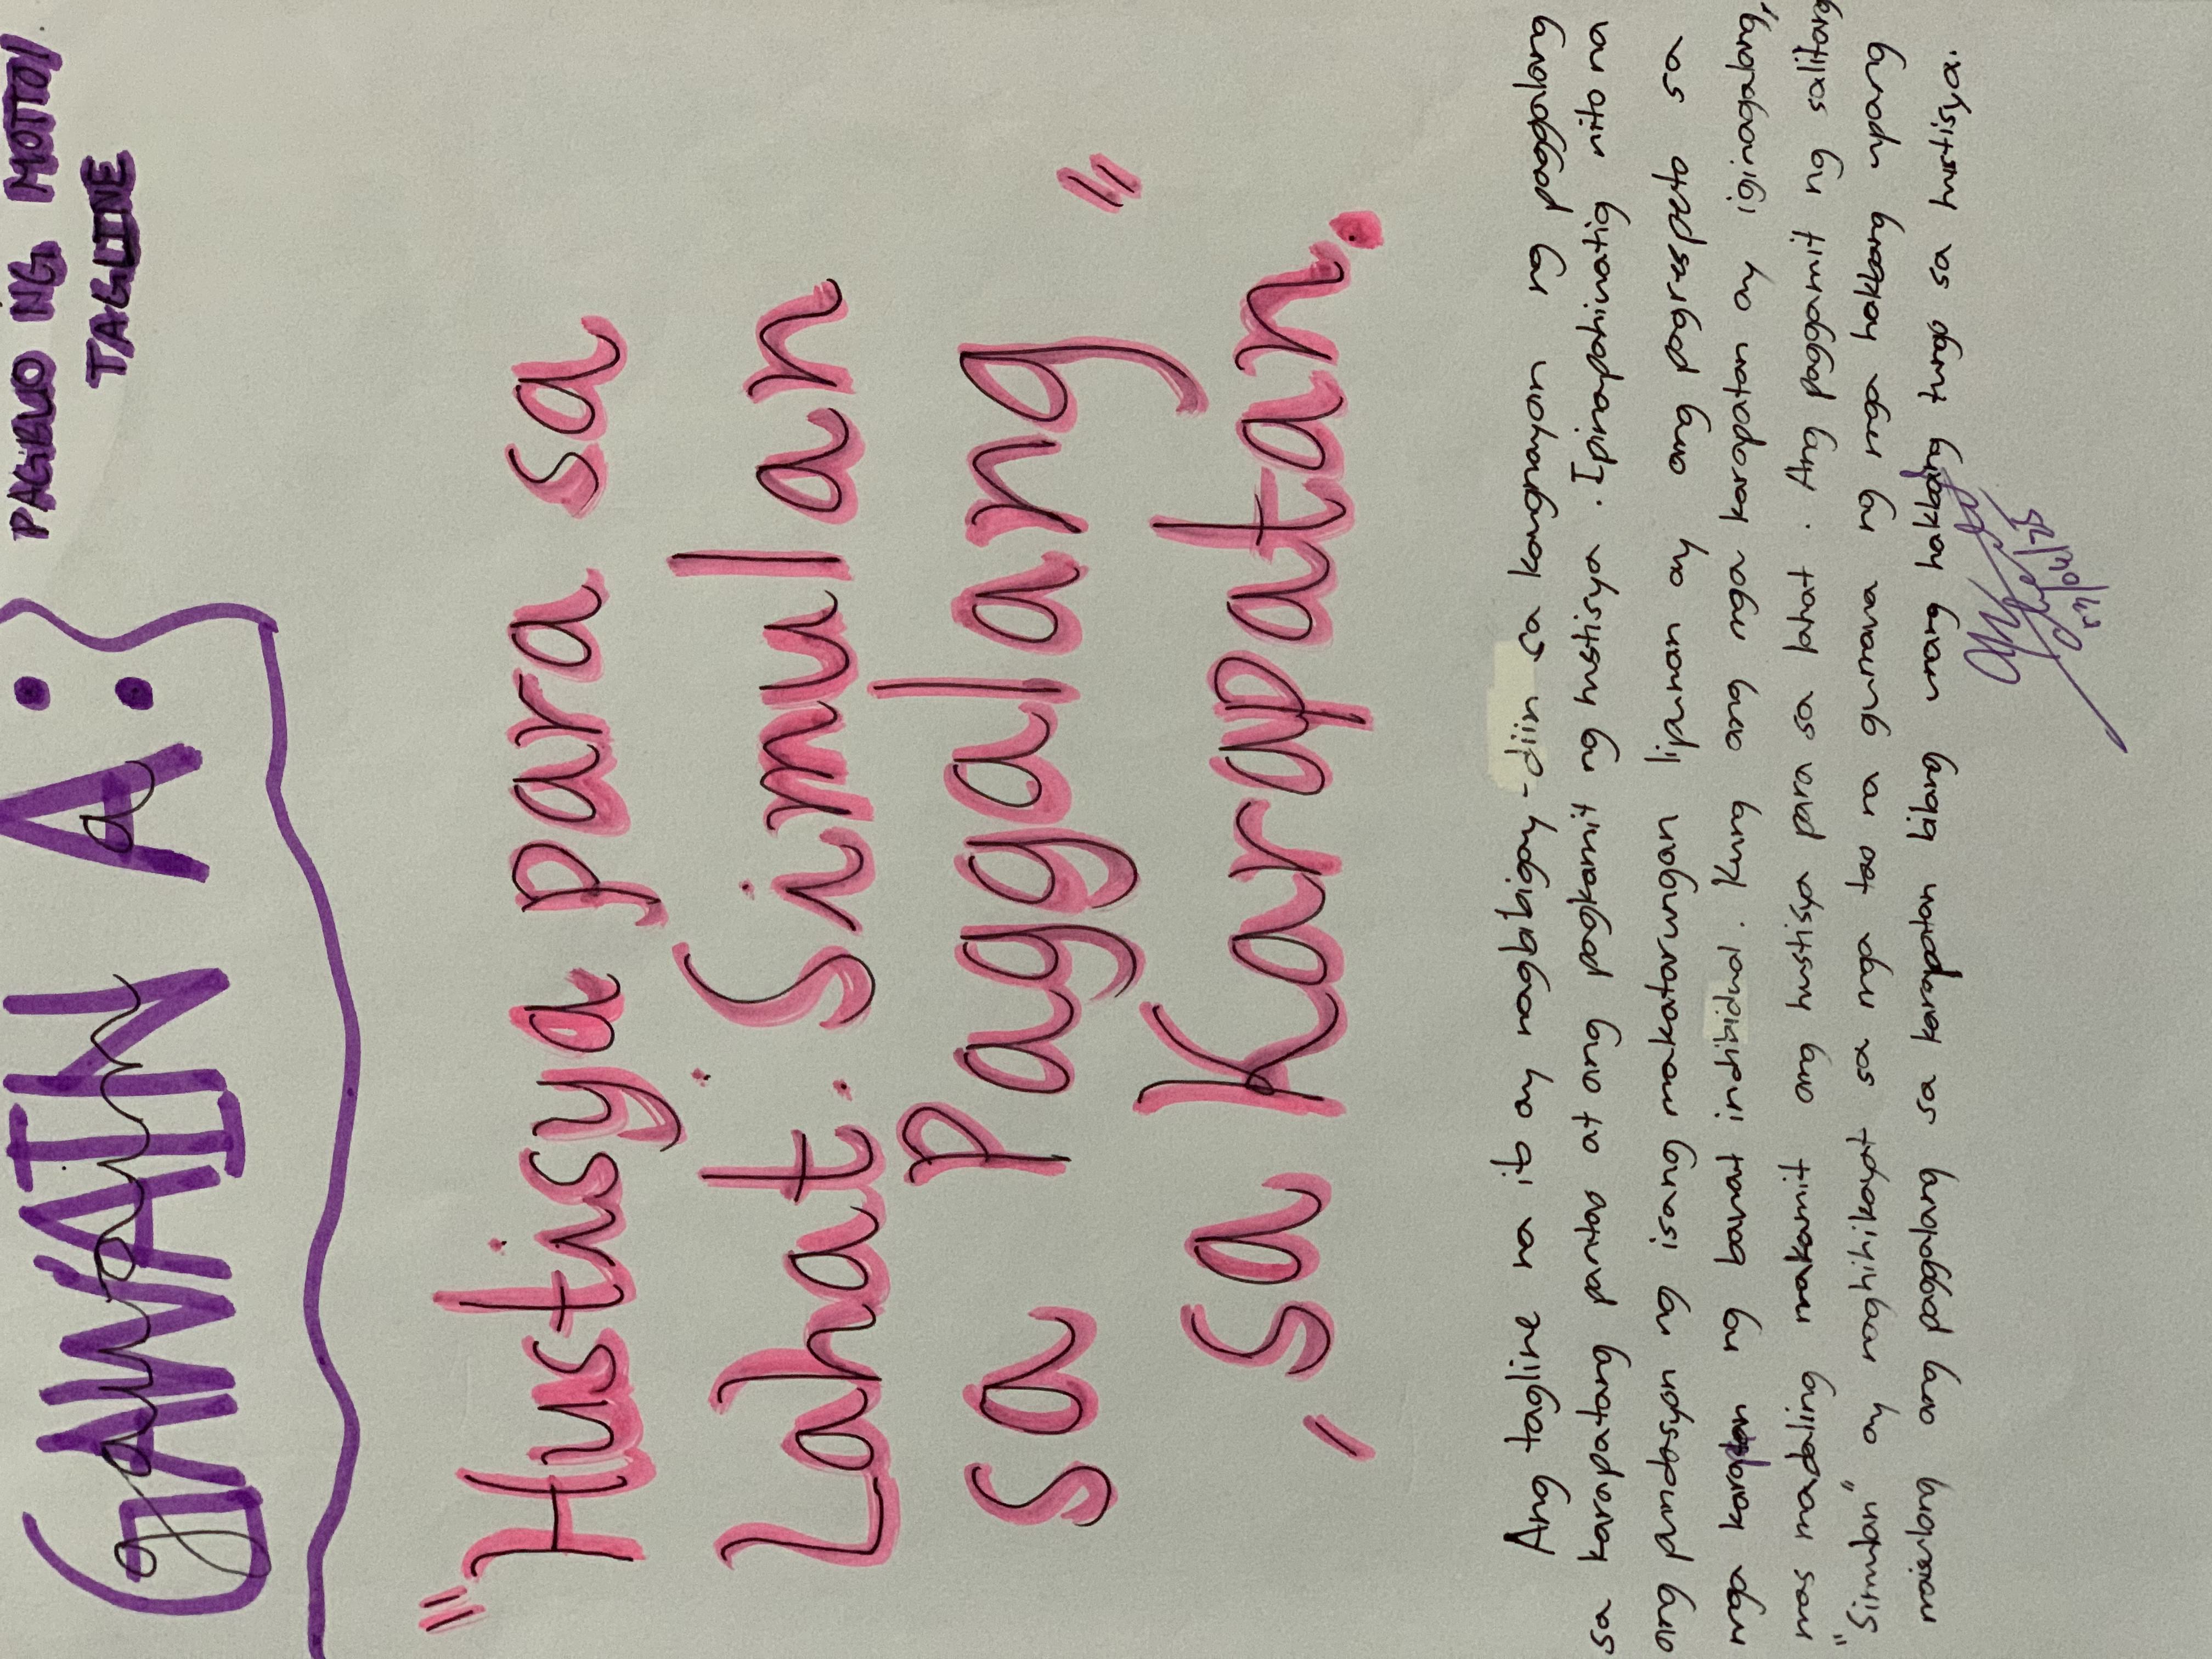 GAWAIN A:
gawain a
PAGBUO NG MOTTO/
TAGLINE
"Hustisya para sa
Lahat: Simulan
sa Paggalang
sa Karapatan."
Ang tagline na ito ay nagbibigay-diin sa kaugnayan ng paggalang
sa karapatang pantao at ang pagkamit ng hustisya. Ipinapahiwatig nito na
ang pundasyon ng isang makatarungan lipunan ay ang pagrespeto sa
mga karapatan ng bawat indibidwal. Kung ang mga karapatan ay iginagalang,
mas madaling makamit ang hustisya para sa lahat. Ang paggamit ng salitang
"Simulan" ay naghihikayat sa mga tao na gumawa ng mga hakbang upang
maisulong ang paggalang sa karapatan bilang unang hakbang tungo sa hustisya.
03/06/25